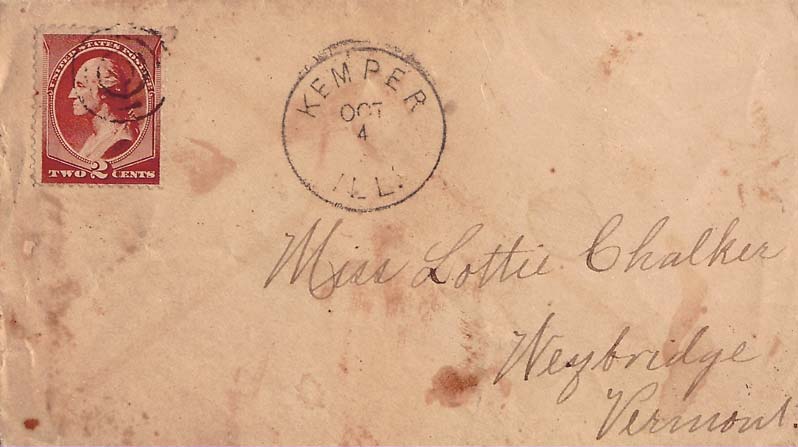 UNITED STATES POSTAGE
TWO 2 CENTS
KEMPER
OCT
4
ILL.
Miss Lottie Chalker
Weybridge
Vermont